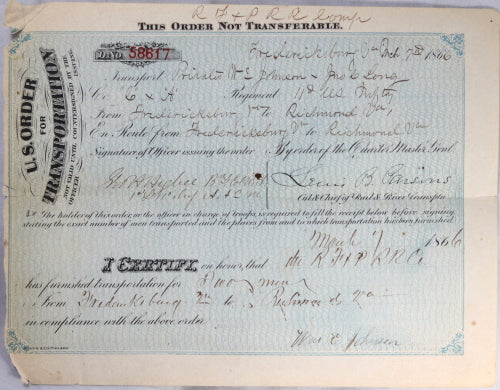 R F & P R R Comp
THIS ORDER NOT TRANSFERABLE.
U.S. ORDER
FOR
TRANSPORTATION
NOT VALID UNTIL COUNTERSIGNED BY THE
ISSUING
OFFICER
No. 58617
Fredericksburg Va Mch 7th 1866
Transport Private Wm E Johnson & Jno C Long
Co "C & H" Regiment 11th US Infty
From Fredericksburg Va to Richmond Va,
En Route from Fredericksburg Va to Richmond Va
Signature of Officer issuing the order By order of the Quarter Master Genl
Lewis B. Parsons
Col & Chief of Rail & River Transptn
The holder of this order, or the officer in charge of troops, is required to fill the receipt below before signing,
stating the exact number of men transported and the places from and to which transportation has been furnished.
March 7 1866
I CERTIFY, on honor, that the R F & P R R Co
has furnished transportation for Two men
From Fredericksburg Va to Richmond Va
in compliance with the above order.
Wm E Johnson